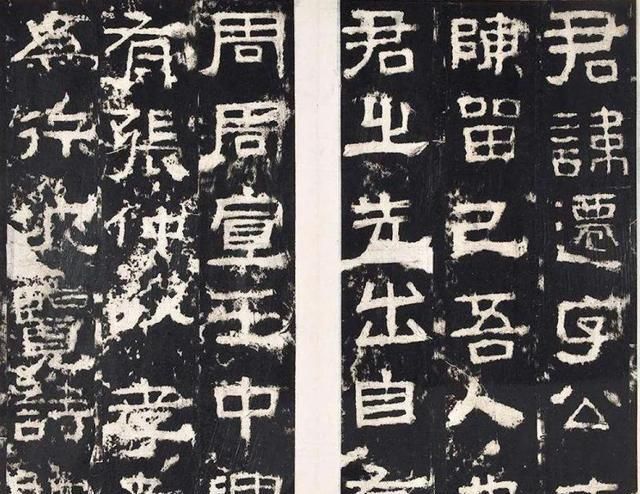 君諱遷字公
陳留己吾人
君之先出自
周周宣王中
有張仲以孝
為行披覽詩